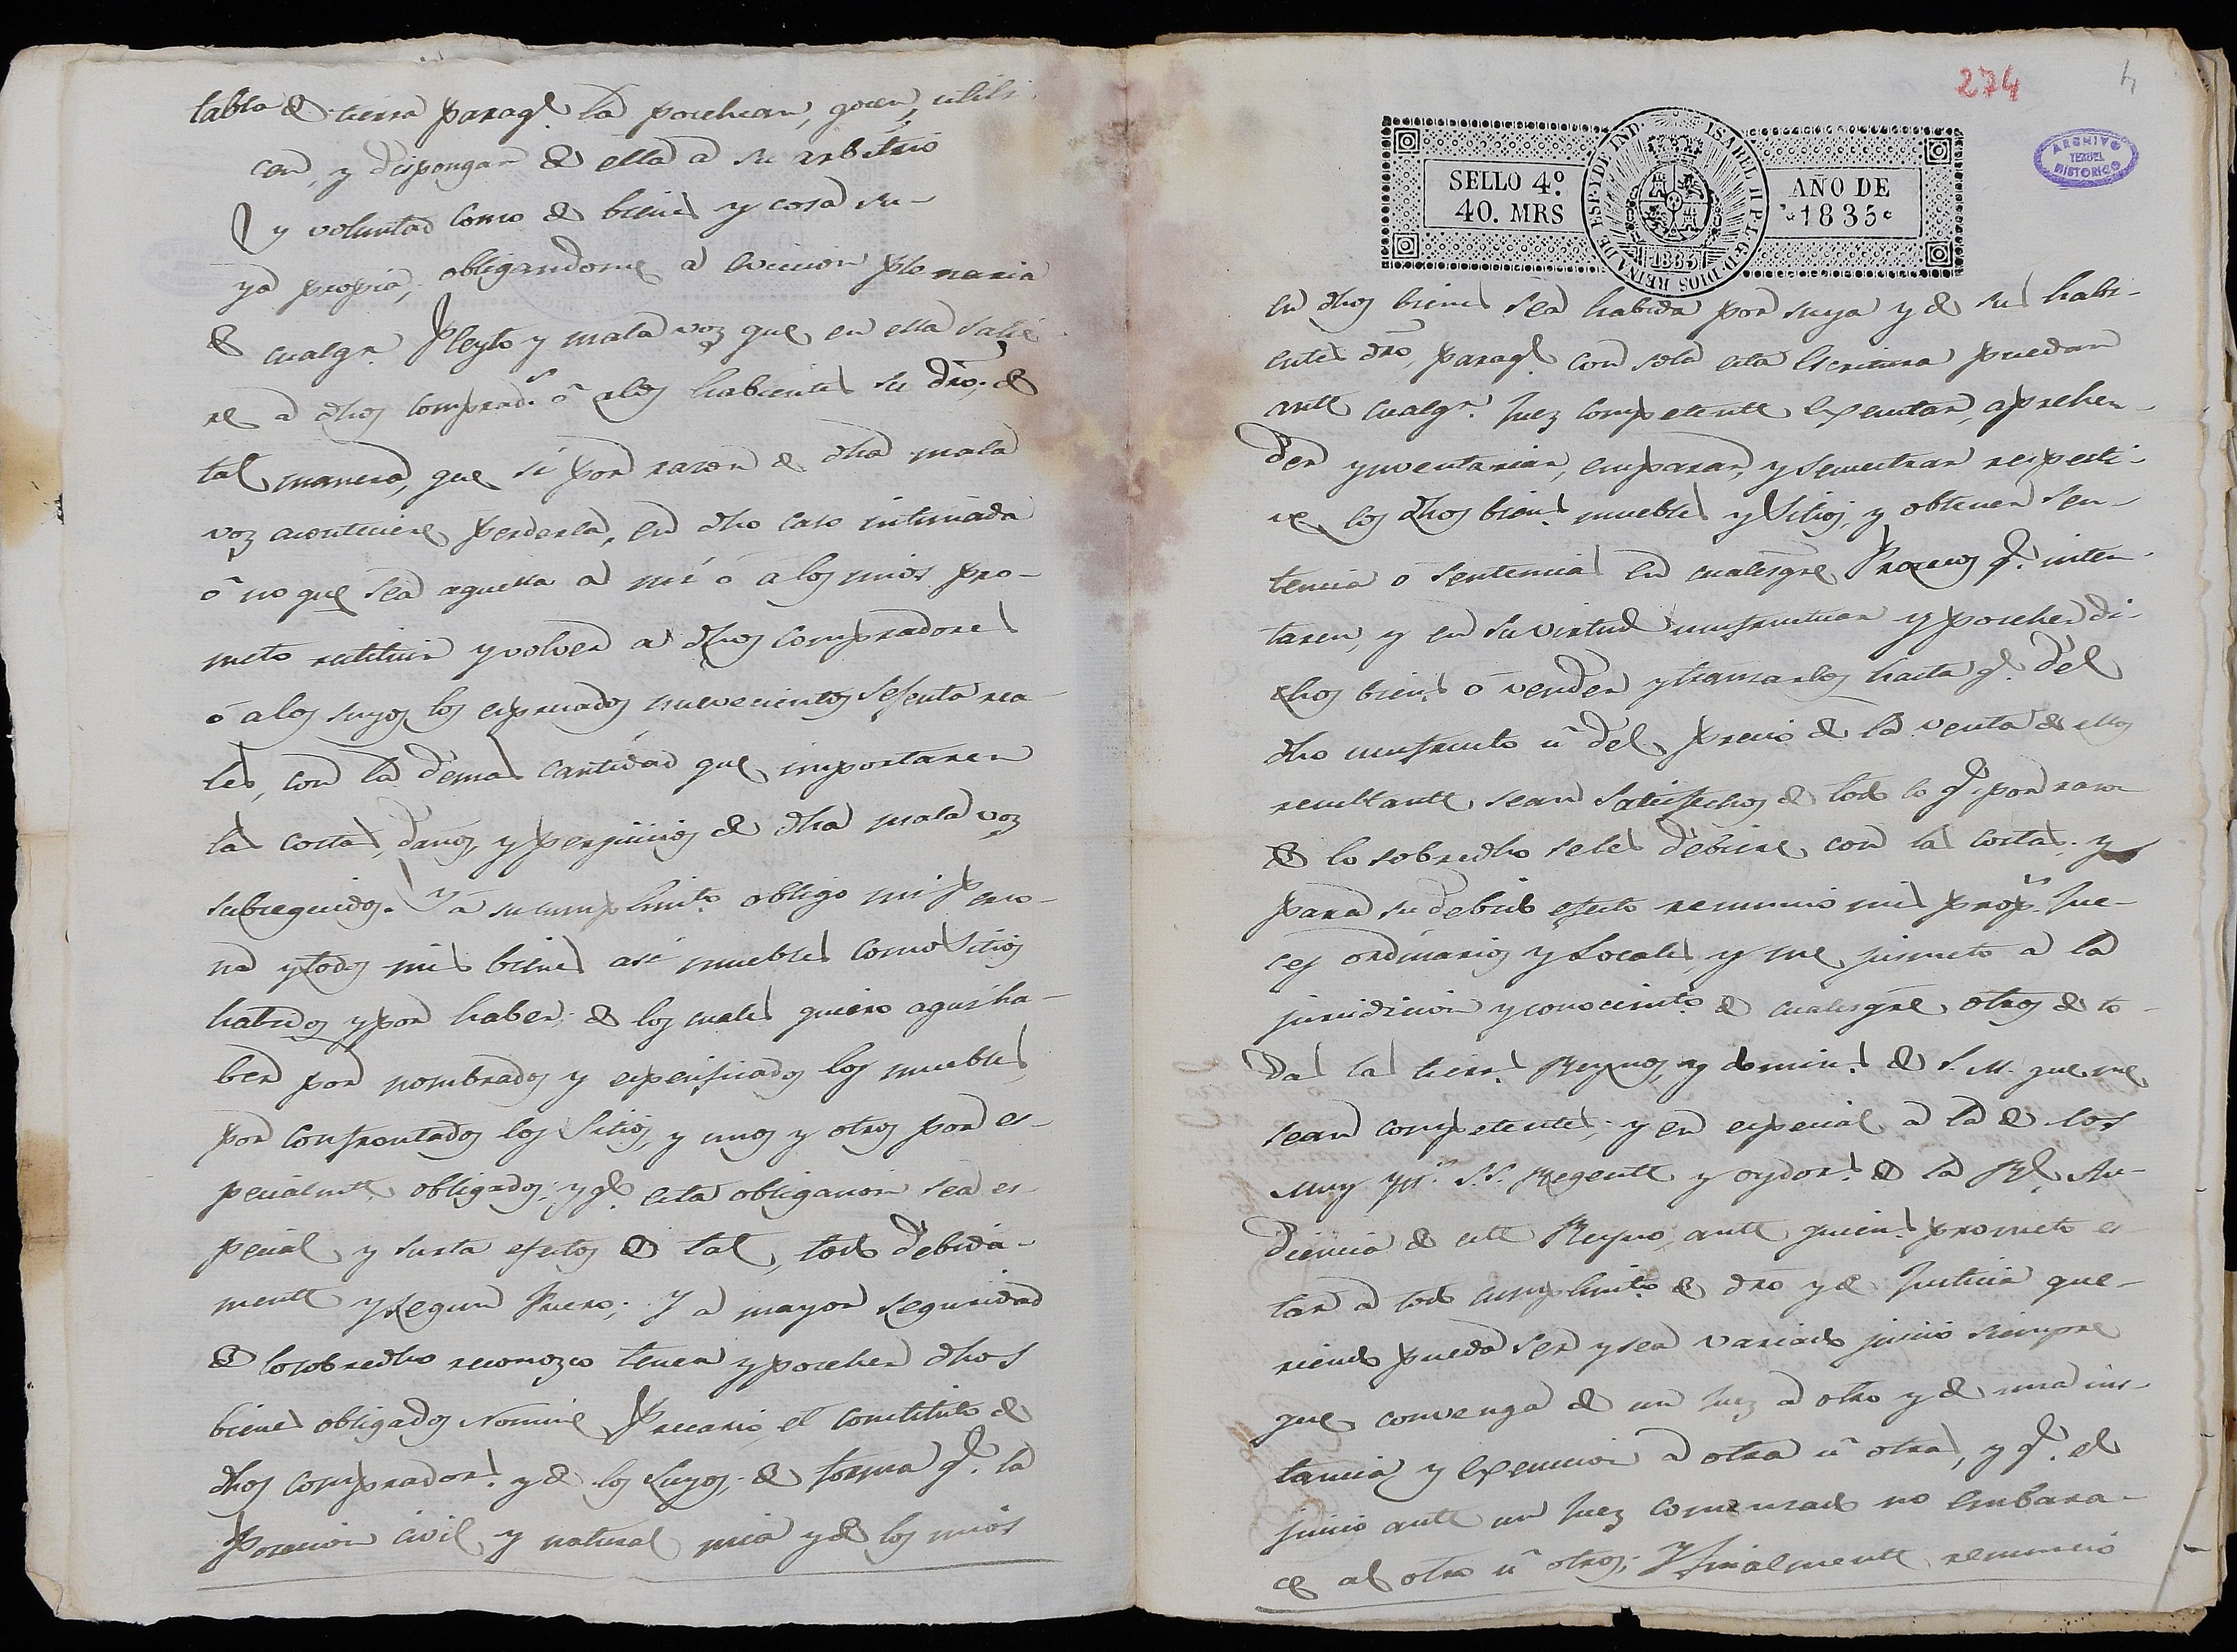 tabla de tierra paraq.e la posehean, gocen, utili
cen, y dispongan de ella a su arbitrio
y voluntad como de bienes y cosa su-
ya propia, obligandome a eviccion plenaria
de cualqr. Pleyto y mala voz que en ella salie
re a dhos comprad.s ó a los habientes su dro; de
tal manera, que si por razon de dha mala
voz aconteciere perderla, en dho caso intimada
ó no que sea aquella a mi ó a los mios pro-
meto restituir y volver a dhos compradores
ó a los suyos los expresados nuevecientos sesenta rea-
les, con la demas cantidad que importaren
las costas, daños, y perjuicios de dha mala voz
subseguidos. Y a su cumplimto. obligo mi perso-
na y todos mis bienes asi muebles como sitios
habidos y por haber; de los cuales quiero aqui ha-
ber por nombrados y especificados los muebles,
por confrontados los sitios, y unos y otros por es-
pecialmte. obligados; y q.e esta obligacion sea es-
pecial y surta efectos de tal, todo debida-
mente y segun Fuero; Y a mayor seguridad
de lo sobredho reconozco tener y poseher dhos
bienes obligados Nomine Precario, et constituto de
dhos comprador.s y de los suyos; de forma q.e la
Posesion civil y natural mia y de los mios
274
4
SELLO 4.º
40. MRS
ISABEL II P. L. G. D. DIOS REINA DE ESP. Y DE IND.
1835
AÑO DE
1835
ARCHIVO
TERUEL
HISTORICO
en dhos bienes sea habida por suya y de sus habi-
entes dro, paraq.e con sola esta Escritura puedan
ante cualqr. Juez competente executar, aprehen-
der ynventariar, emparar, y sequestrar respecti-
ve los dhos bien.s muebles y sitios, y obtener sen-
tencia ó sentencias en cualesqre. Procesos q.e inten-
taren, y en su virtud usufructuar y posehen di-
chos bien.s ó vender y tranzarlos hasta q.e del
dho usufructo ú del precio de la venta de ellos
resultante sean satisfechos de todo lo q.e por razon
de lo sobredho se les debiere con las costas; y
para su debido efecto renuncio mis prop.s Jue-
ces ordinarios y Locales, y me jusmeto a la
jurisdicion y conocimto. de cualesqre. otros de to-
das las tierr.s Reynos, y domin.s de S. M. que me
sean competentes; y en especial a la de los
Muy Yll.s S.S. Regente y oydor.s de la Rl. Au-
diencia de este Reyno, ante quien.s prometo es
tar a todo cumplimto. de dro y de Justicia que-
riendo pueda ser y sea variado juicio siempre
que convenga de un Juez a otro y de una ins-
tancia y execucion a otra ú otras, y q.e el
juicio ante un Juez comenzado no embara-
ce al otro ú otros; Y finalmente renuncio